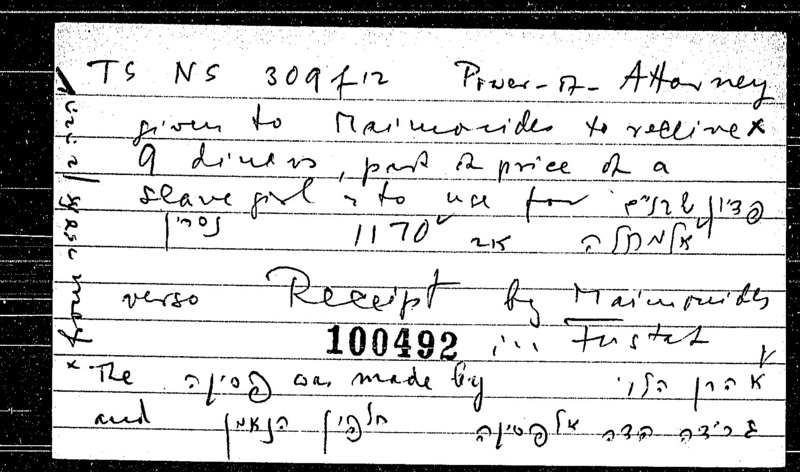 TS NS 309 f 12 Power-of-Attorney
given to Maimonides to receive x
9 dinars, part of price of a
slave girl & to use for פדיון שבויים
נסרין 1170 אב אלמחלה
verso Receipt by Maimonides
100492 in Fustat
The פסיקה was made by אהרן הלוי
and חלפון הנאמן הדה אלפסיקה
x from